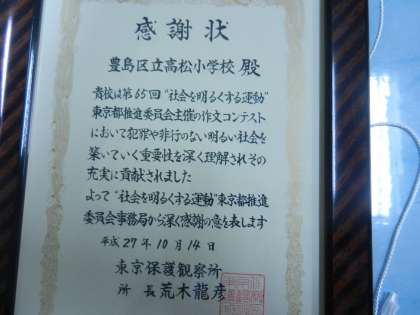 感謝状
豊島区立高松小学校 殿
貴校は第65回“社会を明るくする運動”
東京都推進委員会主催の作文コンテスト
において犯罪や非行のない明るい社会を
築いていく重要性を深く理解されその
充実に貢献されました
よって“社会を明るくする運動”東京都推進
委員会事務局から深く感謝の意を表します
平成27年10月14日
東京保護観察所
所長 荒木龍彦